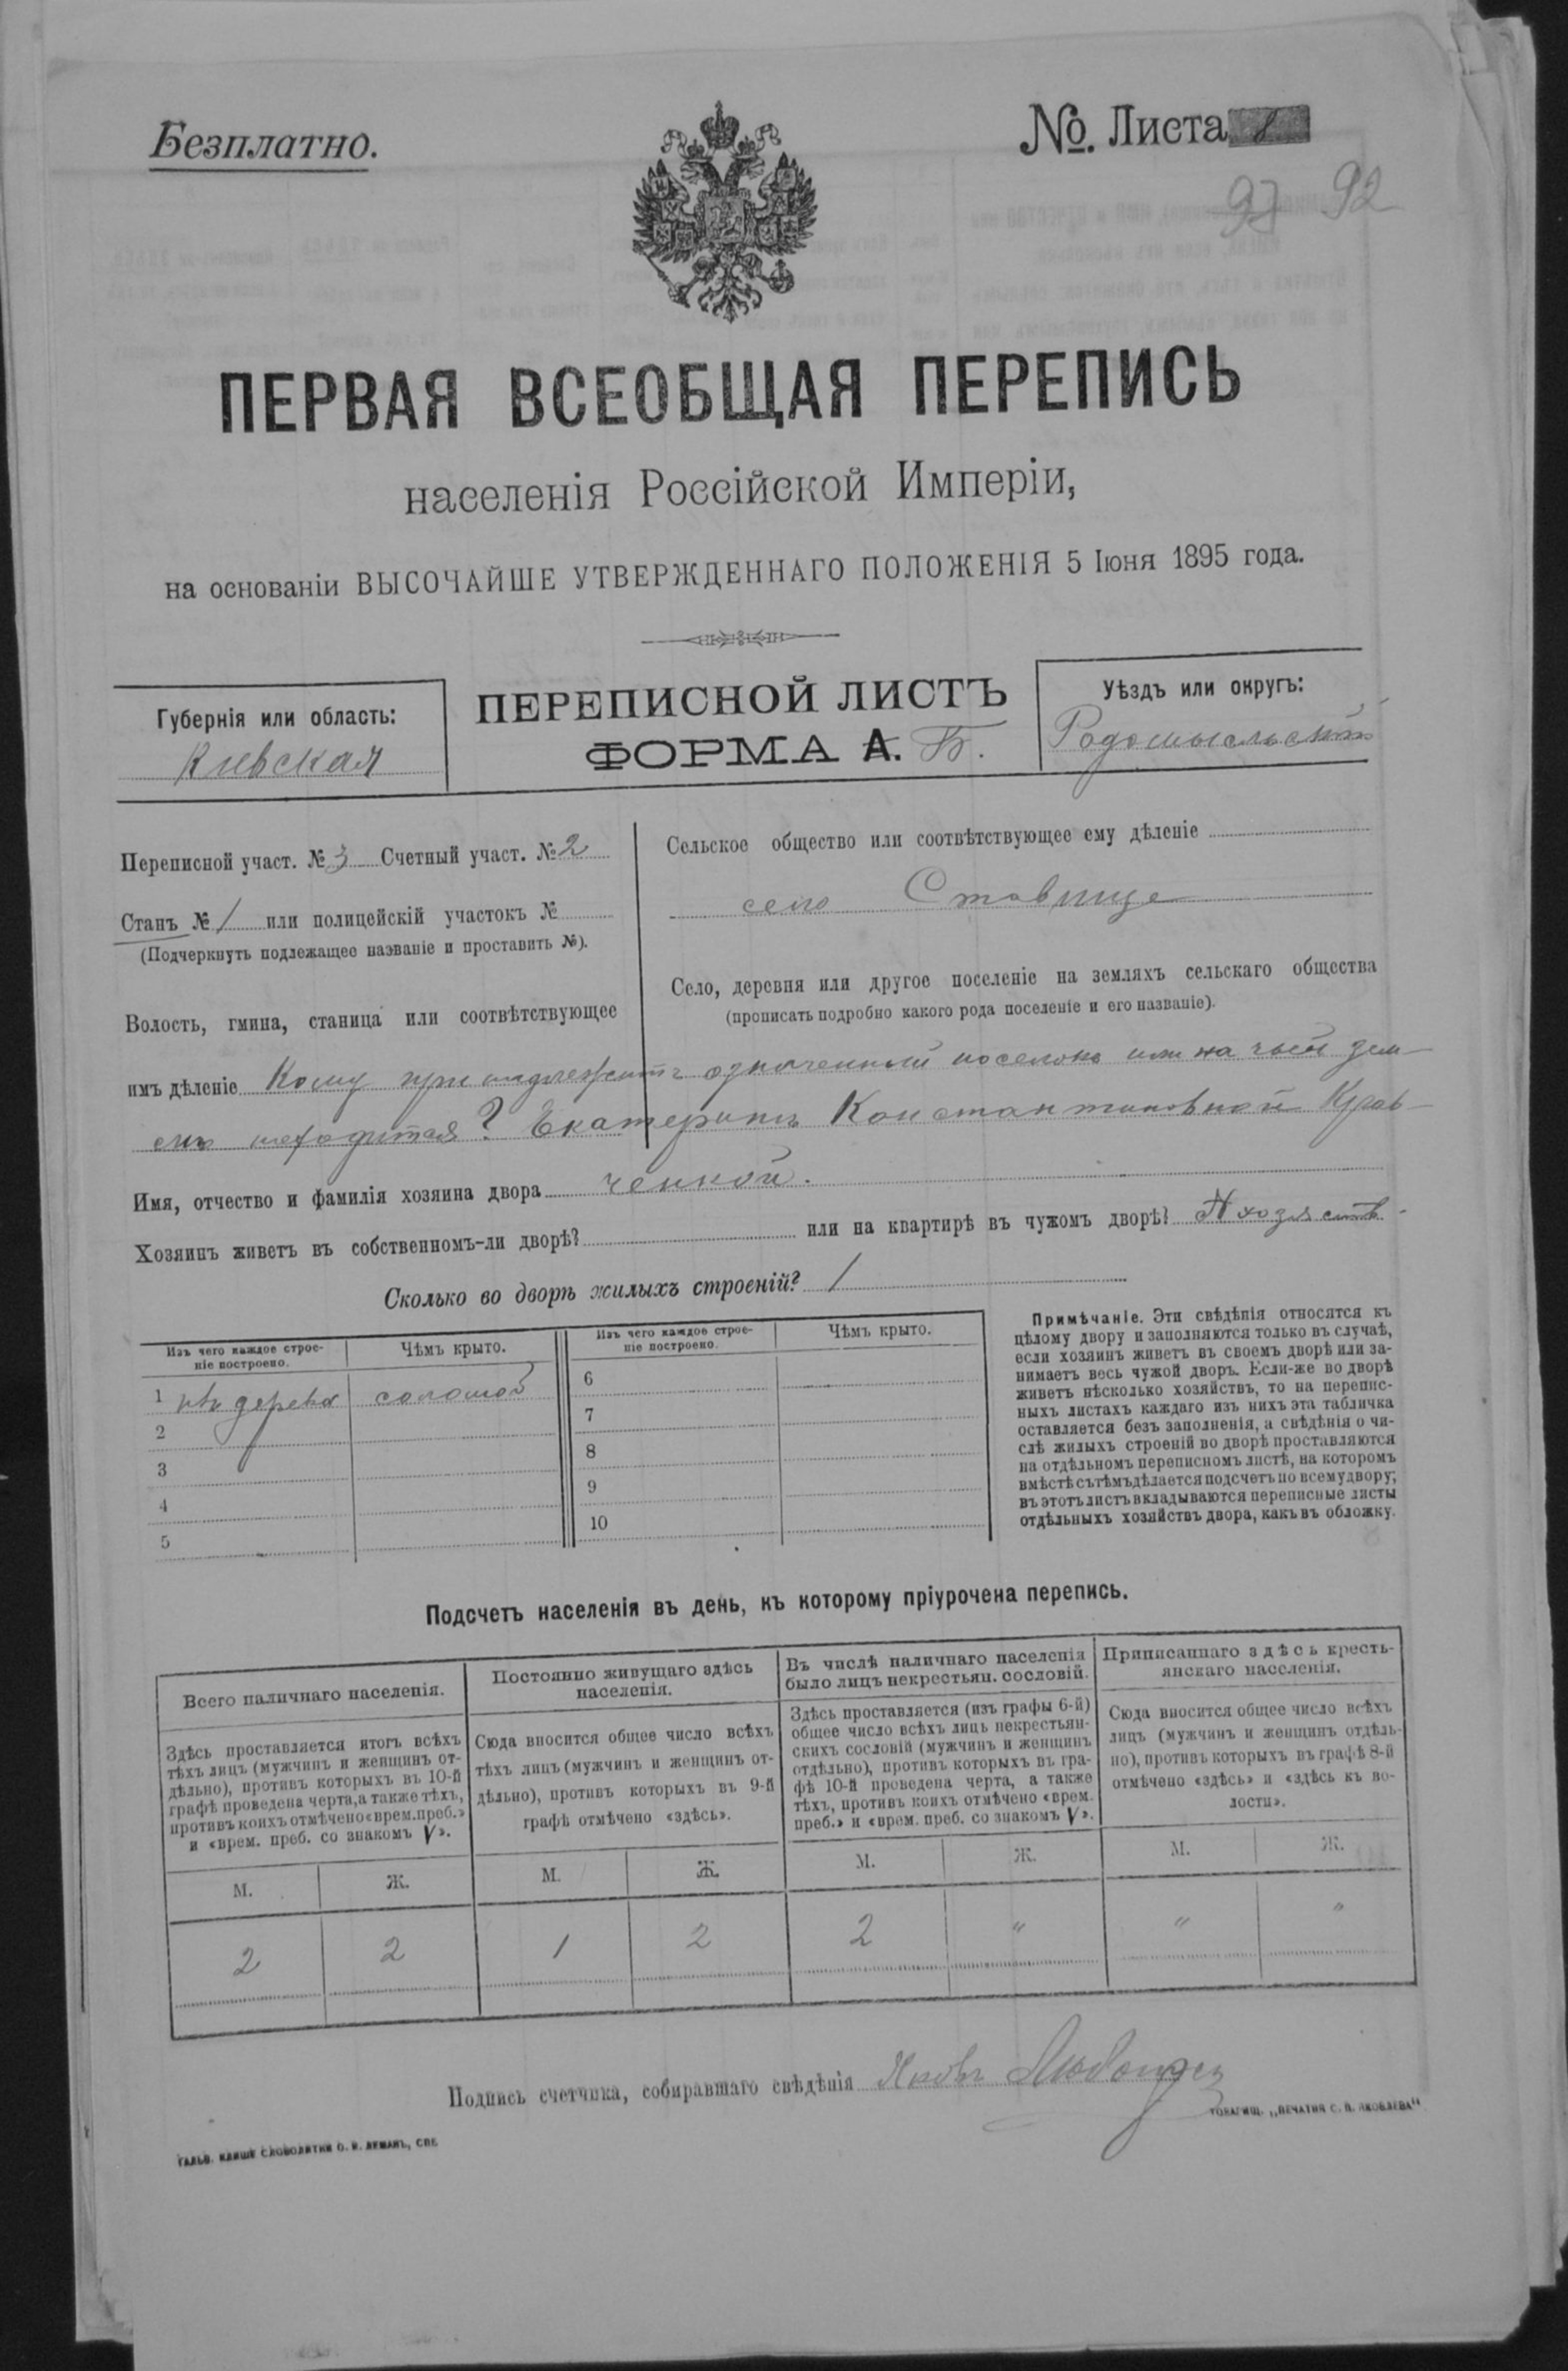 Безплатно.
№. Листа 8
93 92
ПЕРВАЯ ВСЕОБЩАЯ ПЕРЕПИСЬ
населенія Россійской Имперіи,
на основаніи ВЫСОЧАЙШЕ УТВЕРЖДЕННАГО ПОЛОЖЕНІЯ 5 Іюня 1895 года.
Губернія или область:
Кіевская
ПЕРЕПИСНОЙ ЛИСТЪ
ФОРМА А. Б.
Уѣздъ или округъ:
Радомысльскій
Переписной участ. № 3 Счетный участ. № 2
Станъ № 1 или полицейскій участокъ №
(Подчеркнуть подлежащее названіе и проставить №).
Волость, гмина, станица или соотвѣтствующее
Сельское общество или соотвѣтствующее ему дѣленіе
село Ставище
Село, деревня или другое поселеніе на земляхъ сельскаго общества
(прописать подробно какого рода поселеніе и его названіе).
имъ дѣленіе Кому принадлежитъ означенный поселокъ или на чьей зем-
лѣ находится? Екатеринѣ Константиновной Крав-
Имя, отчество и фамилія хозяина двора ченкой.
Хозяинъ живетъ въ собственномъ-ли дворѣ? или на квартирѣ въ чужомъ дворѣ?
Сколько во дворѣ жилыхъ строеній? 1
Изъ чего каждое строе-
ніе построено.
Чѣмъ крыто.
Изъ чего каждое строе-
ніе построено.
Чѣмъ крыто.
1 изъ дерева соломой
2
3
4
5
6
7
8
9
10
Примѣчаніе. Эти свѣдѣнія относятся къ
цѣлому двору и заполняются только въ случаѣ,
если хозяинъ живетъ въ своемъ дворѣ или за-
нимаетъ весь чужой дворъ. Если-же во дворѣ
живетъ нѣсколько хозяйствъ, то на перепис-
ныхъ листахъ каждаго изъ нихъ эта табличка
оставляется безъ заполненія, а свѣдѣнія о чи-
слѣ жилыхъ строеній во дворѣ проставляются
на отдѣльномъ переписномъ листѣ, на которомъ
вмѣстѣ съ тѣмъ дѣлается подсчетъ по всему двору;
въ этотъ листъ вкладываются переписные листы
отдѣльныхъ хозяйствъ двора, какъ въ обложку.
Подсчетъ населенія въ день, къ которому пріурочена перепись.
Всего наличнаго населенія.
Постоянно живущаго здѣсь
населенія.
Въ числѣ наличнаго населенія
было лицъ некрестьян. сословій.
Приписаннаго здѣсь кресть-
янскаго населенія.
Здѣсь проставляется итогъ всѣхъ
тѣхъ лицъ (мужчинъ и женщинъ от-
дѣльно), противъ которыхъ въ 10-й
графѣ проведена черта, а также тѣхъ,
противъ коихъ отмѣчено «врем. преб.»
и «врем. преб. со знакомъ V».
Сюда вносится общее число всѣхъ
тѣхъ лицъ (мужчинъ и женщинъ от-
дѣльно), противъ которыхъ въ 9-й
графѣ отмѣчено «здѣсь».
Здѣсь проставляется (изъ графы 6-й)
общее число всѣхъ лицъ некрестьян-
скихъ сословій (мужчинъ и женщинъ
отдѣльно), противъ которыхъ въ гра-
фѣ 10-й проведена черта, а также
тѣхъ, противъ коихъ отмѣчено «врем.
преб.» и «врем. преб. со знакомъ V».
Сюда вносится общее число всѣхъ
лицъ (мужчинъ и женщинъ отдѣль-
но), противъ которыхъ въ графѣ 8-й
отмѣчено «здѣсь» и «здѣсь къ во-
лости».
М. Ж. М. Ж. М. Ж. М. Ж.
2 2 1 2 2 " " "
Подпись счетчика, собиравшаго свѣдѣнія Яковъ
ГАЛЬВ. КЛИШЕ СЛОВОЛИТНИ О. И. ЛЕМАНЪ, СПБ.
ТОВАРИЩ. „ПЕЧАТНЯ С. П. ЯКОВЛЕВА“